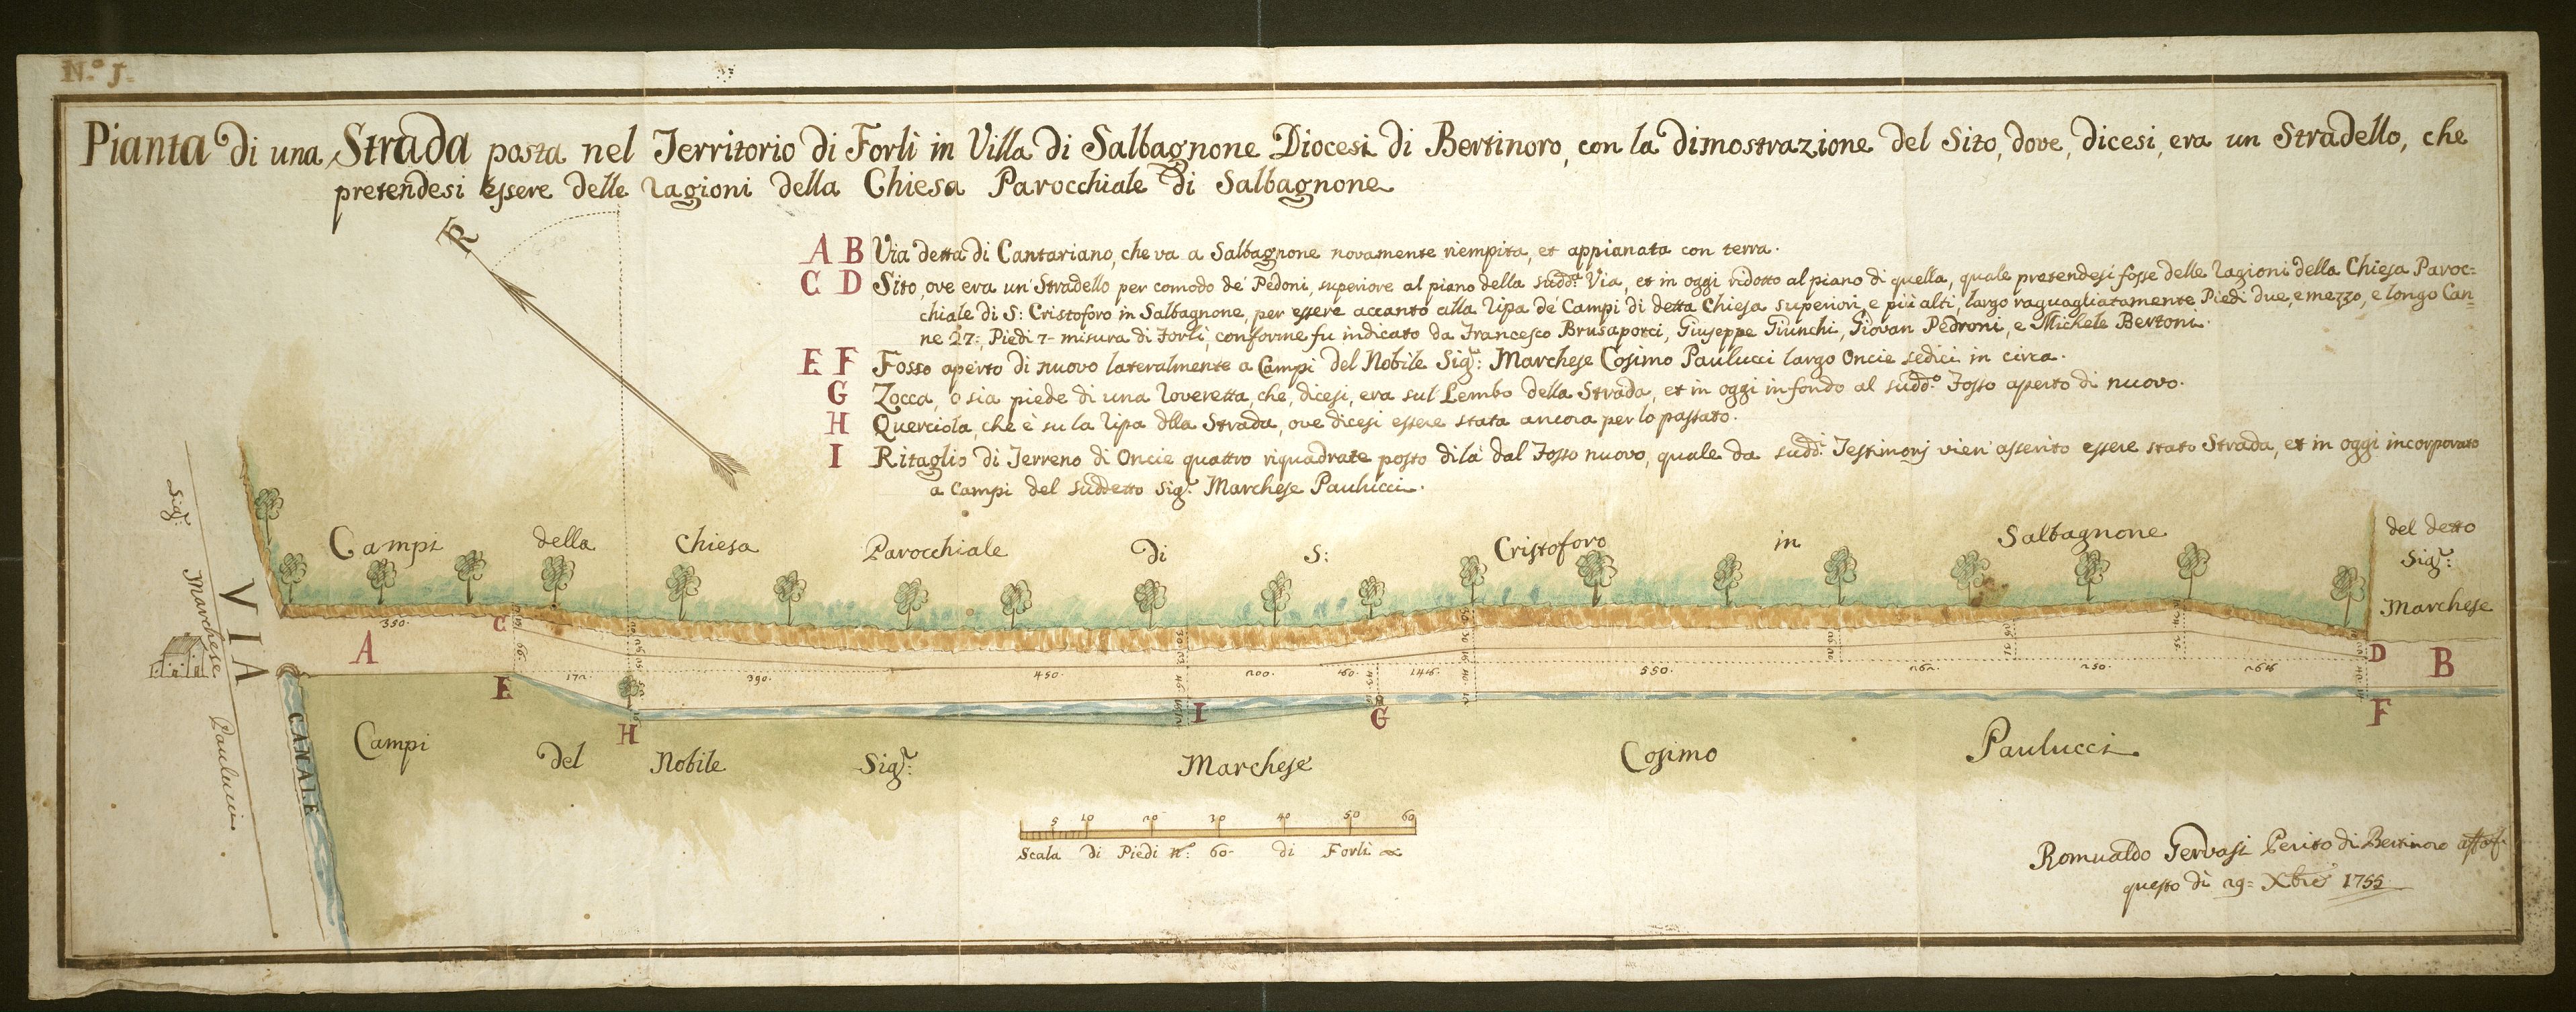 N.º 1.
Pianta di una Strada posta nel Territorio di Forlì in Villa di Salbagnone Diocesi di Bertinoro, con la dimostrazione del Sito, dove, dicesi, era un Stradello, che
pretendesi essere delle ragioni della Chiesa Parocchiale di Salbagnone
A B Via detta di Cantariano, che va a Salbagnone novamente riempita, et appianata con terra.
C D Sito, ove era un Stradello per comodo de' Pedoni, superiore al piano della sudd.ª Via, et in oggi ridotto al piano di quella, quale pretendesi fosse delle ragioni della Chiesa Paroc=
chiale di S: Cristoforo in Salbagnone, per essere accanto alla ripa de' Campi di detta Chiesa superiori, e più alti, largo raguagliatamente Piedi due, e mezzo, e longo Can=
ne 27:, Piedi 7- misura di Forlì, conforme fu indicato da Francesco Brusaporci, Giuseppe Giunchi, Giovan Pedroni, e Michele Bertoni.
E F Fosso aperto di nuovo lateralmente a Campi del Nobile Sig.r: Marchese Cosimo Paulucci largo Oncie sedici in circa.
G Zocca, o sia piede di una roveretta, che, dicesi, era sul Lembo della Strada, et in oggi in fondo al sudd.º Fosso aperto di nuovo.
H Querciola, che è su la ripa dlla Strada, ove dicesi essere stata ancora per lo passato.
I Ritaglio di Terreno di Oncie quattro riquadrate posto di là dal Fosso nuovo, quale da sudd.i Testimonj vien asserito essere stato Strada, et in oggi incorporato
a Campi del suddetto Sig.r Marchese Paulucci.
Campi della Chiesa Parocchiale di S: Cristoforo in Salbagnone
del detto
Sig.r:
Marchese
Sig.r:
Marchese
Paulucci
VIA
CANALE
350.
A
C
E
H
172.
390.
450.
200.
60.
146.
550.
262.
250.
266
I
G
D
B
F
Campi del Nobile Sig.r: Marchese Cosimo Paulucci
5 10 20 30 40 50 60
Scala di Piedi n.º: 60- di Forlì
Romualdo Gervasi Perito di Bertinoro
questo dì 29= Xbre 1755